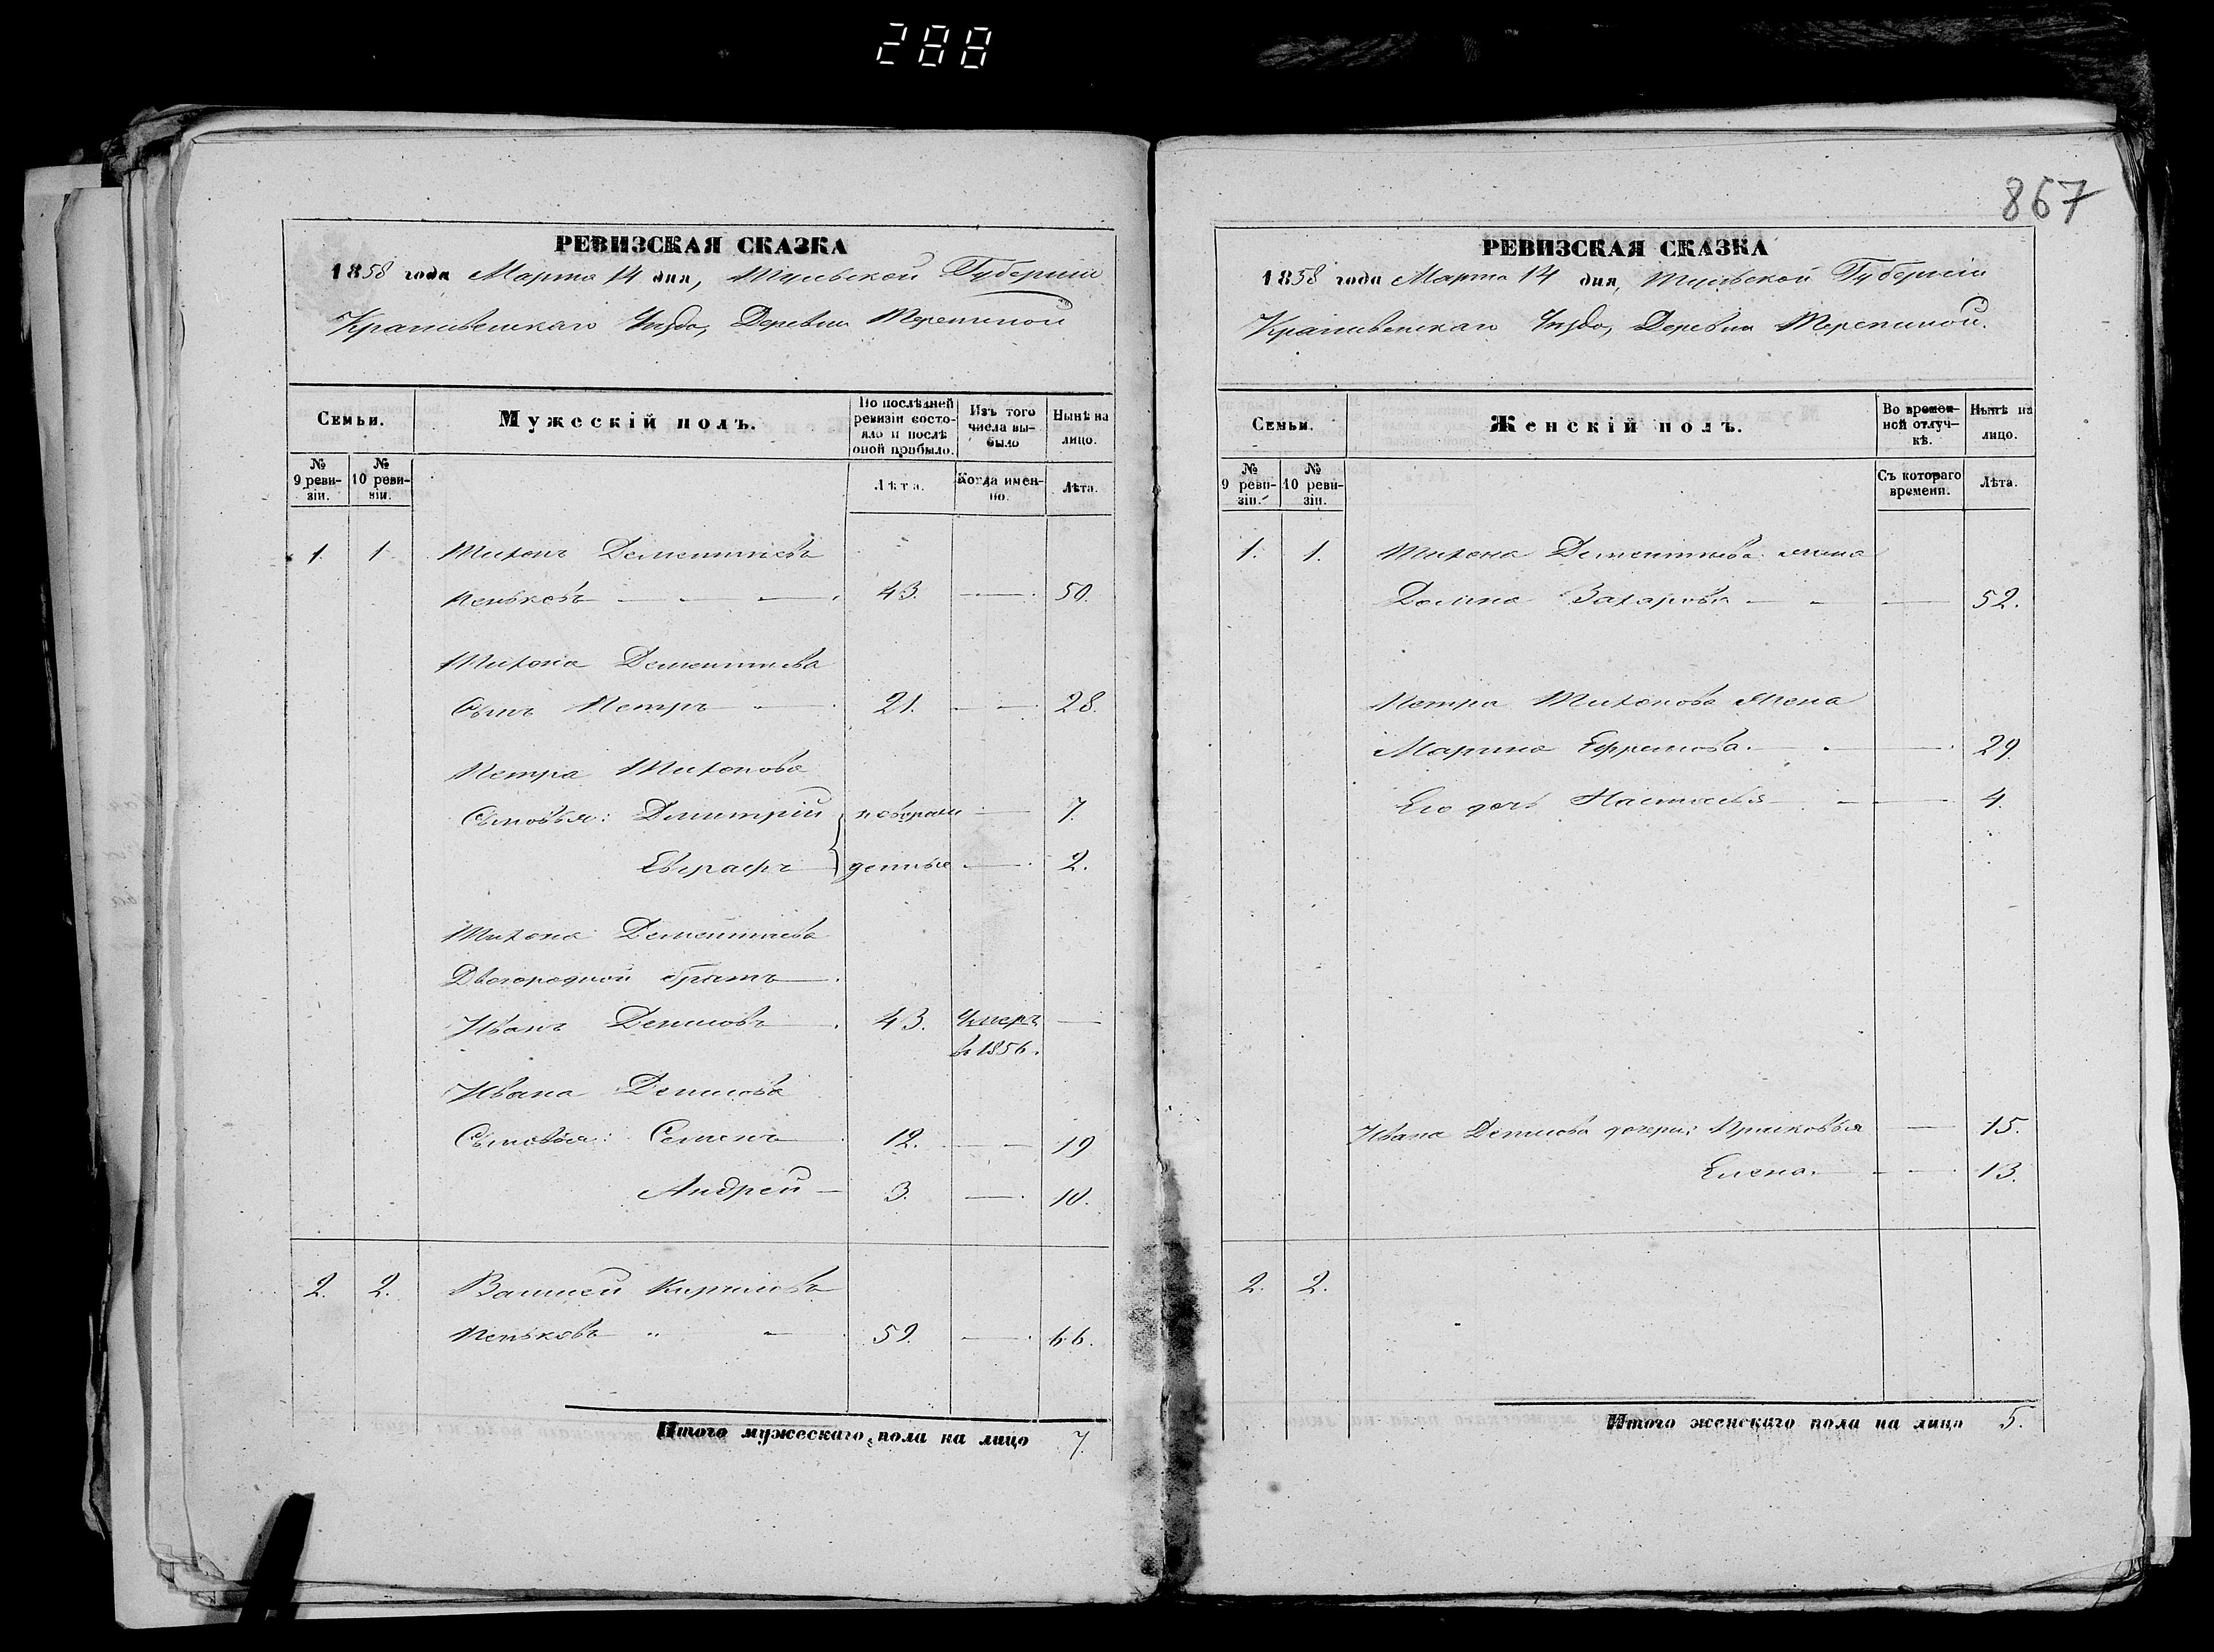 288
867
РЕВИЗСКАЯ СКАЗКА
1858 года Марта 14 дня, Тульской Губернии
Крапивенскаго Уезда, Деревни
Семьи.
Мужескій полъ.
По последней ревизіи состояло и после оной прибыло.
Изъ того числа выбыло
Ныне на лицо.
№ 9 ревизіи.
№ 10 ревизіи.
Лѣта.
Когда именно.
Лѣта.
1. 1. Тихонъ Дементьевъ
Пеньковъ 43. 50.
Тихона Дементьева
Сынъ Петръ 21. 28.
Петра Тихонова
Сыновья: Дмитрій новорож 7.
Евграфъ денные 2.
Тихона Дементьева
Двоюродной братъ
Иванъ Денисовъ 43. Умеръ
въ 1856.
Ивана Денисова
Сыновья: Семенъ 12. 19
Андрей 3. 10.
2. 2. Василій Кириловъ
Пеньковъ 59. 66.
Итого мужескаго пола на лицо 7.
РЕВИЗСКАЯ СКАЗКА
1858 года Марта 14 дня, Тульской Губерніи
Крапивенскаго Уезда, Деревни
Семьи.
Женскій полъ.
Во временной отлучкѣ.
Нынѣ на лицо.
№ 9 ревизіи.
№ 10 ревизіи.
Съ котораго времени.
Лѣта.
1. 1. Тихона Дементьева жена
Домна Захарова 52.
Петра Тихонова жена
Марина Ефремова 29.
Его дочь Настасья 4.
Ивана Денисова дочери: Прасковья 15.
Елена 13.
2. 2.
Итого женскаго пола на лицо 5.